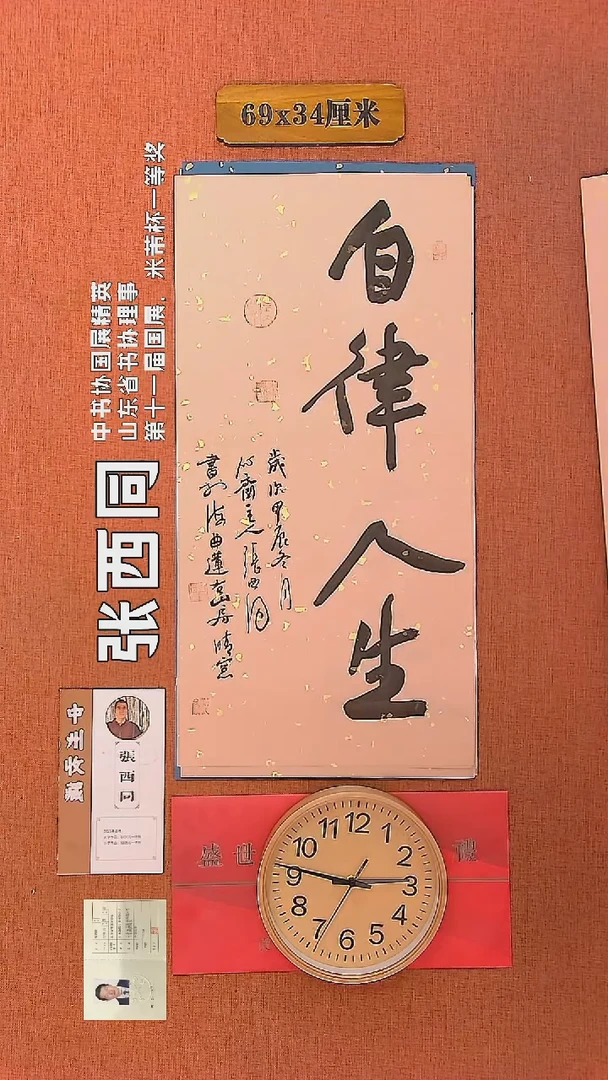 69x34厘米
自律人生
歲次甲辰冬月
心齋主人張西同
書於海曲蓮山居晴窗
中书协国展精英
山东省书协理事
第十一届国展、米芾杯一等奖
张西同
張西同
盛世
12
1
2
3
4
5
6
7
8
9
10
11